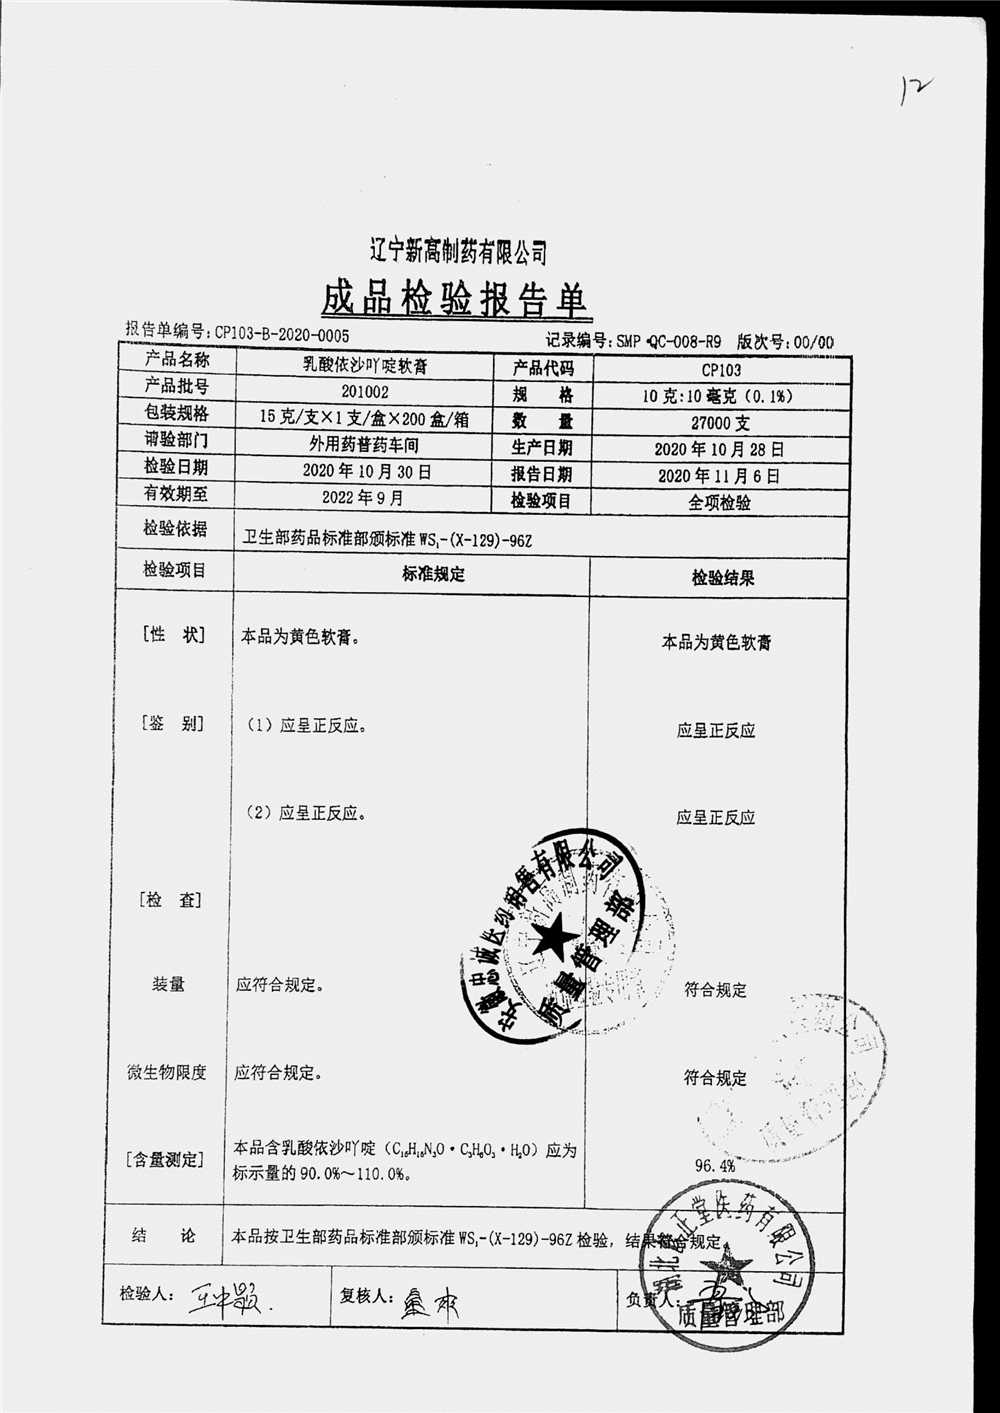 12
辽宁新高制药有限公司
成品检验报告单
报告单编号:CP103-B-2020-0005 记录编号:SMP·QC-008-R9 版次号:00/00
产品名称 乳酸依沙吖啶软膏 产品代码 CP103
产品批号 201002 规 格 10克:10毫克(0.1%)
包装规格 15克/支×1支/盒×200盒/箱 数 量 27000支
请验部门 外用药普药车间 生产日期 2020年10月28日
检验日期 2020年10月30日 报告日期 2020年11月6日
有效期至 2022年9月 检验项目 全项检验
检验依据 卫生部药品标准部颁标准WS₁-(X-129)-96Z
检验项目 标准规定 检验结果
[性 状] 本品为黄色软膏。 本品为黄色软膏
[鉴 别] (1)应呈正反应。 应呈正反应
(2)应呈正反应。 应呈正反应
[检 查]
装量 应符合规定。 符合规定
微生物限度 应符合规定。 符合规定
[含量测定] 本品含乳酸依沙吖啶(C₁₅H₁₅N₃O·C₃H₆O₃·H₂O)应为
标示量的90.0%~110.0%。 96.4%
结 论 本品按卫生部药品标准部颁标准WS₁-(X-129)-96Z检验,结果符合规定
检验人: 复核人: 负责人:
质量管理部
质量管理部